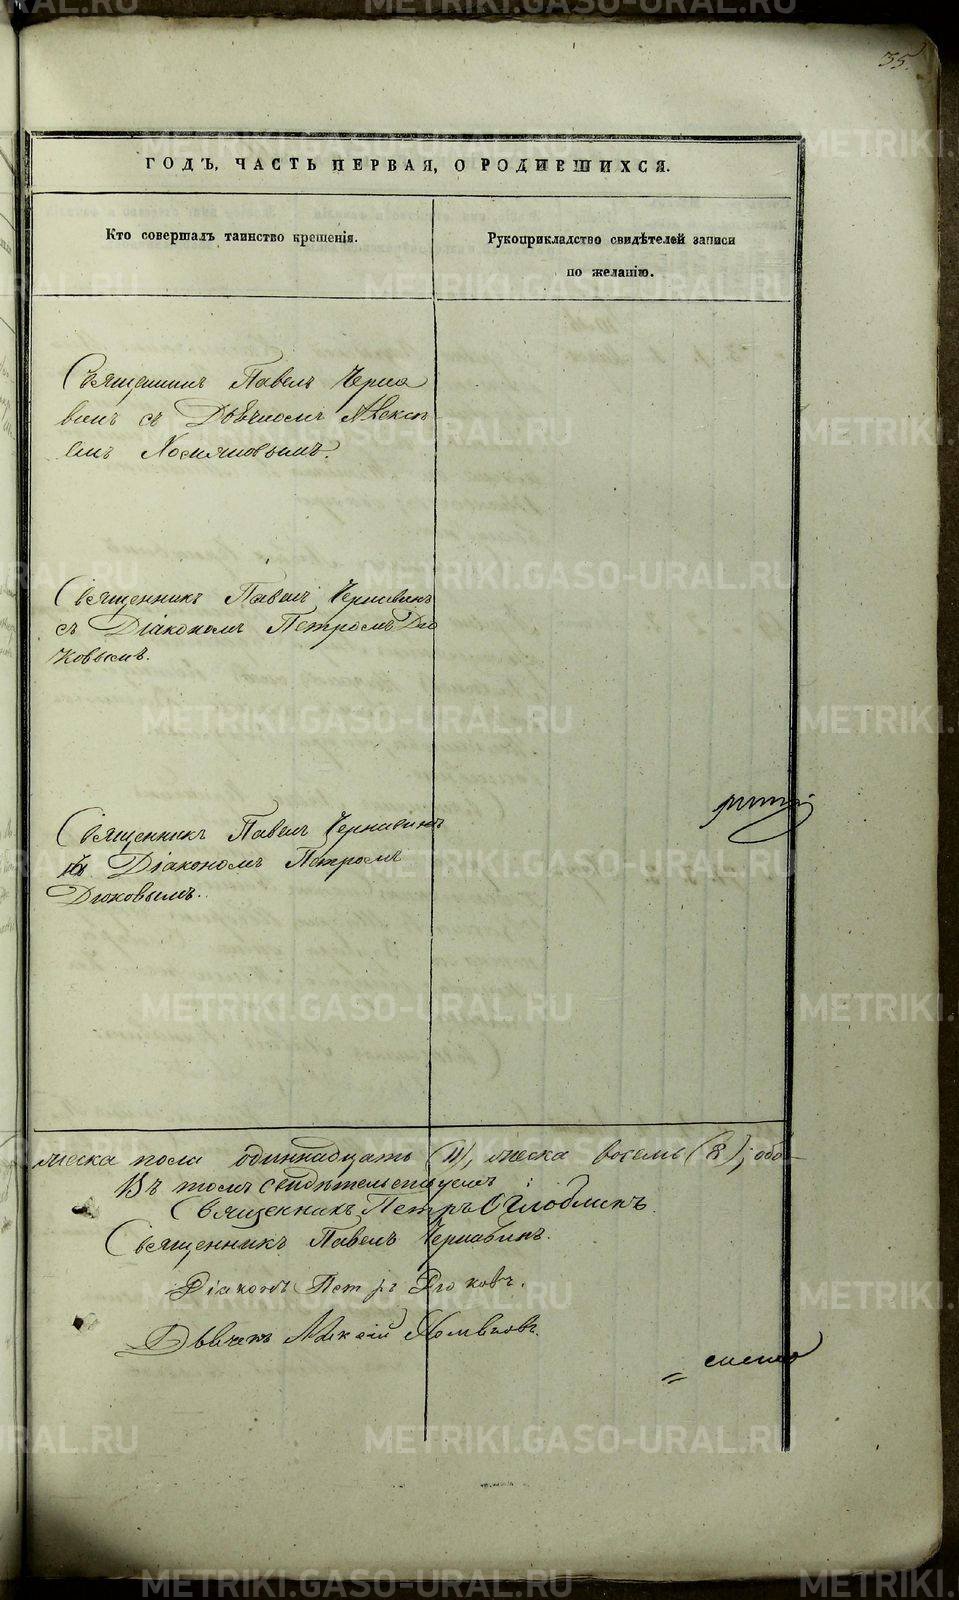 35.
ГОДЪ, ЧАСТЬ ПЕРВАЯ, О РОДИВШИХСЯ.
Кто совершалъ таинство крещенія.
Рукоприкладство свидѣтелей записи
по желанію.
Священникъ Павелъ Черна
винъ съ Дьячкомъ Алексѣ
емъ Хомяковымъ.
Священникъ Павелъ Чернавинъ
съ Діакономъ Петромъ Дю
ковымъ.
Священникъ Павелъ Чернавинъ
съ Діакономъ Петромъ
Дюковымъ.
мужеска пола одиннадцать (11), женска восемь (8); обо-
Въ томъ свидѣтельствуемъ:
Священникъ Петръ
Священникъ Павелъ Чернавинъ.
Діаконъ Петръ Дюковъ.
Дьячекъ Алексій Хомяковъ.
METRIKI.GASO-URAL.RU